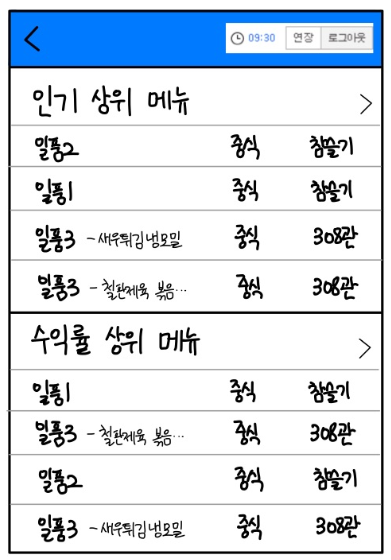 09:30 연장 로그아웃
인기 상위 메뉴
일품2 중식 참슬기
일품1 중식 참슬기
일품3 - 새우튀김냉모밀 중식 308관
일품3 - 철판제육 볶음... 중식 308관
수익률 상위 메뉴
일품1 중식 참슬기
일품3 - 철판제육 볶음... 중식 308관
일품2 중식 참슬기
일품3 - 새우튀김냉모밀 중식 308관